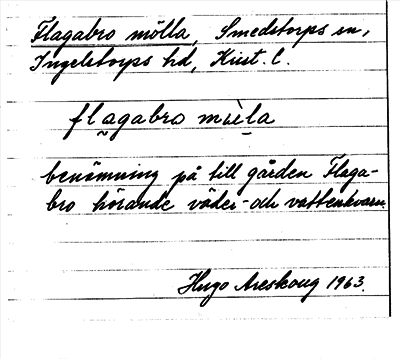 Flagabro mölla, Smedstorps sn,
Ingelstorps hd, Krist. l.
flagabro mùla
benämning på till gården Flaga-
bro hörande väder- och vattenkvarn.
Hugo Areskoug 1963.